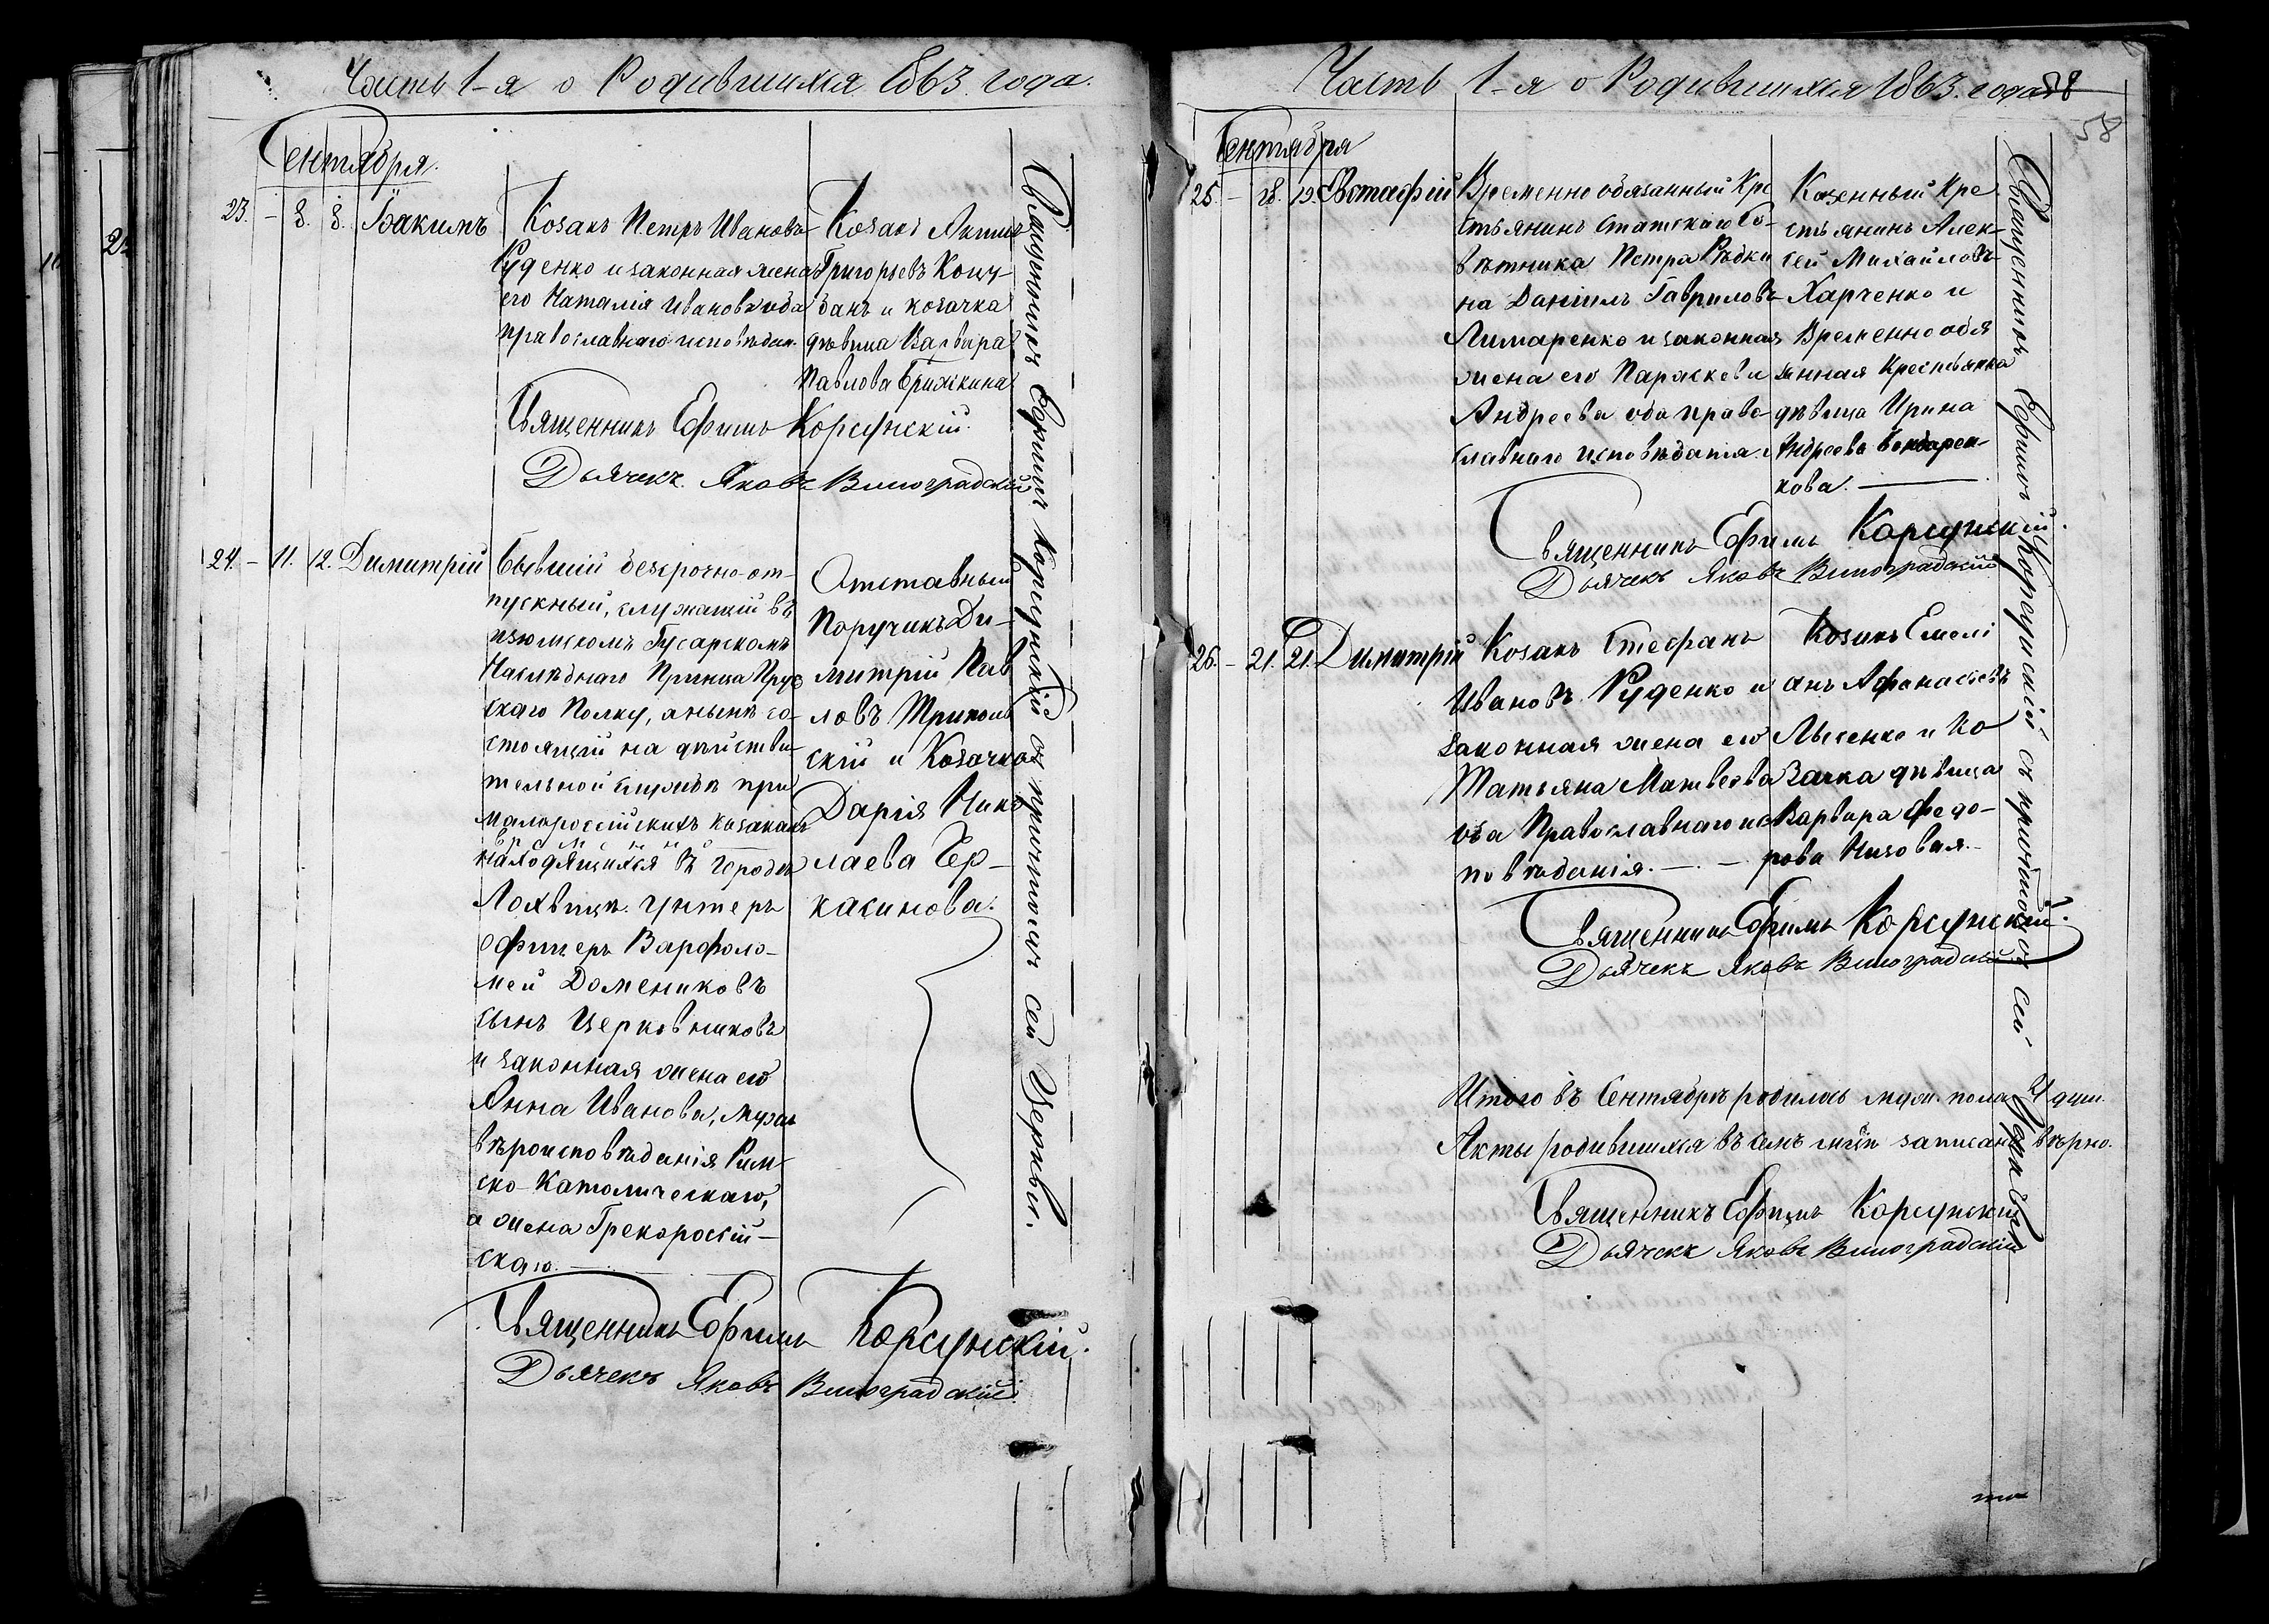 Часть 1-я о Родившихся 1863 года.
Сентября.
23. – 8. 8. Іоакимъ
Козакъ Петръ Ивановъ
Руденко и законная жена
его Наталія Иванова оба
православнаго исповѣдан.
Козакъ
Григорьевъ
и козачка
дѣвица Варвара
Павлова
Священникъ Ефимъ Корсунскій.
Дьячекъ Яковъ Виноградскій
24. – 11. 12. Димитрій
Бывшій безсрочно-от-
пускный, служащій въ
Изюмскомъ Гусарскомъ
Наслѣднаго Принца Прус
скаго Полку, а нынѣ со-
стоящій на дѣйстви-
тельной службѣ при
малороссійскихъ козакахъ
временно
находящихся въ городѣ
Лохвицѣ. унтеръ
офицеръ Варфоло-
мей Домениковъ
сынъ Церковниковъ
и законная жена его
Анна Иванова, мужъ
вѣроисповѣданія Рим-
ско-Католическаго,
а жена Грекороссій-
скаго.
Отставный
Поручикъ Ди-
митрій Пав
ловъ Триполь
скій и Козачка
Дарія Нико
лаева Чер-
касинова.
Священникъ Ефимъ Корсунскій.
Дьячекъ Яковъ Виноградскій.
Священникъ Ефимъ Корсунскій съ причтомъ сей Церкви.
Часть 1-я о Родившихся 1863. года
58
58
Сентября
25. – 18. 19. Евстафій
Временно обязанный Кре
стьянинъ статскаго Со-
вѣтника Петра Рѣдки
на Даніилъ Гавриловъ
Лимаренко и законная
жена его Параскева
Андреева оба право-
славнаго исповѣданія.
Казенный Кре
стьянинъ Алек-
сей Михайловъ
Харченко и
Временно обя
занная Крестьянка
дѣвица Ирина
Андреева Бондарен-
кова.
Священникъ Ефимъ Корсунскій.
Дьячекъ Яковъ Виноградскій
26. – 21. 21. Димитрій
Козакъ Стефанъ
Ивановъ Руденко и
законная жена его
Татьяна Матвеева
оба Православнаго ис
повѣданія.
Козакъ Емелі
анъ Афанасьевъ
Лысенко и Ко
зачка дѣвица
Варвара Федо-
рова Низовая.
Священникъ Ефимъ Корсунскій.
Дьячекъ Яковъ Виноградскій
Итого въ Сентябрѣ родилось муж. пола 4 души.
Акты родившихся въ семъ м-цѣ записаны вѣрно.
Священникъ Ефимъ Корсунскій
Дьячекъ Яковъ Виноградскій
Священникъ Ефимъ Корсунскій съ причтомъ сей Церкви